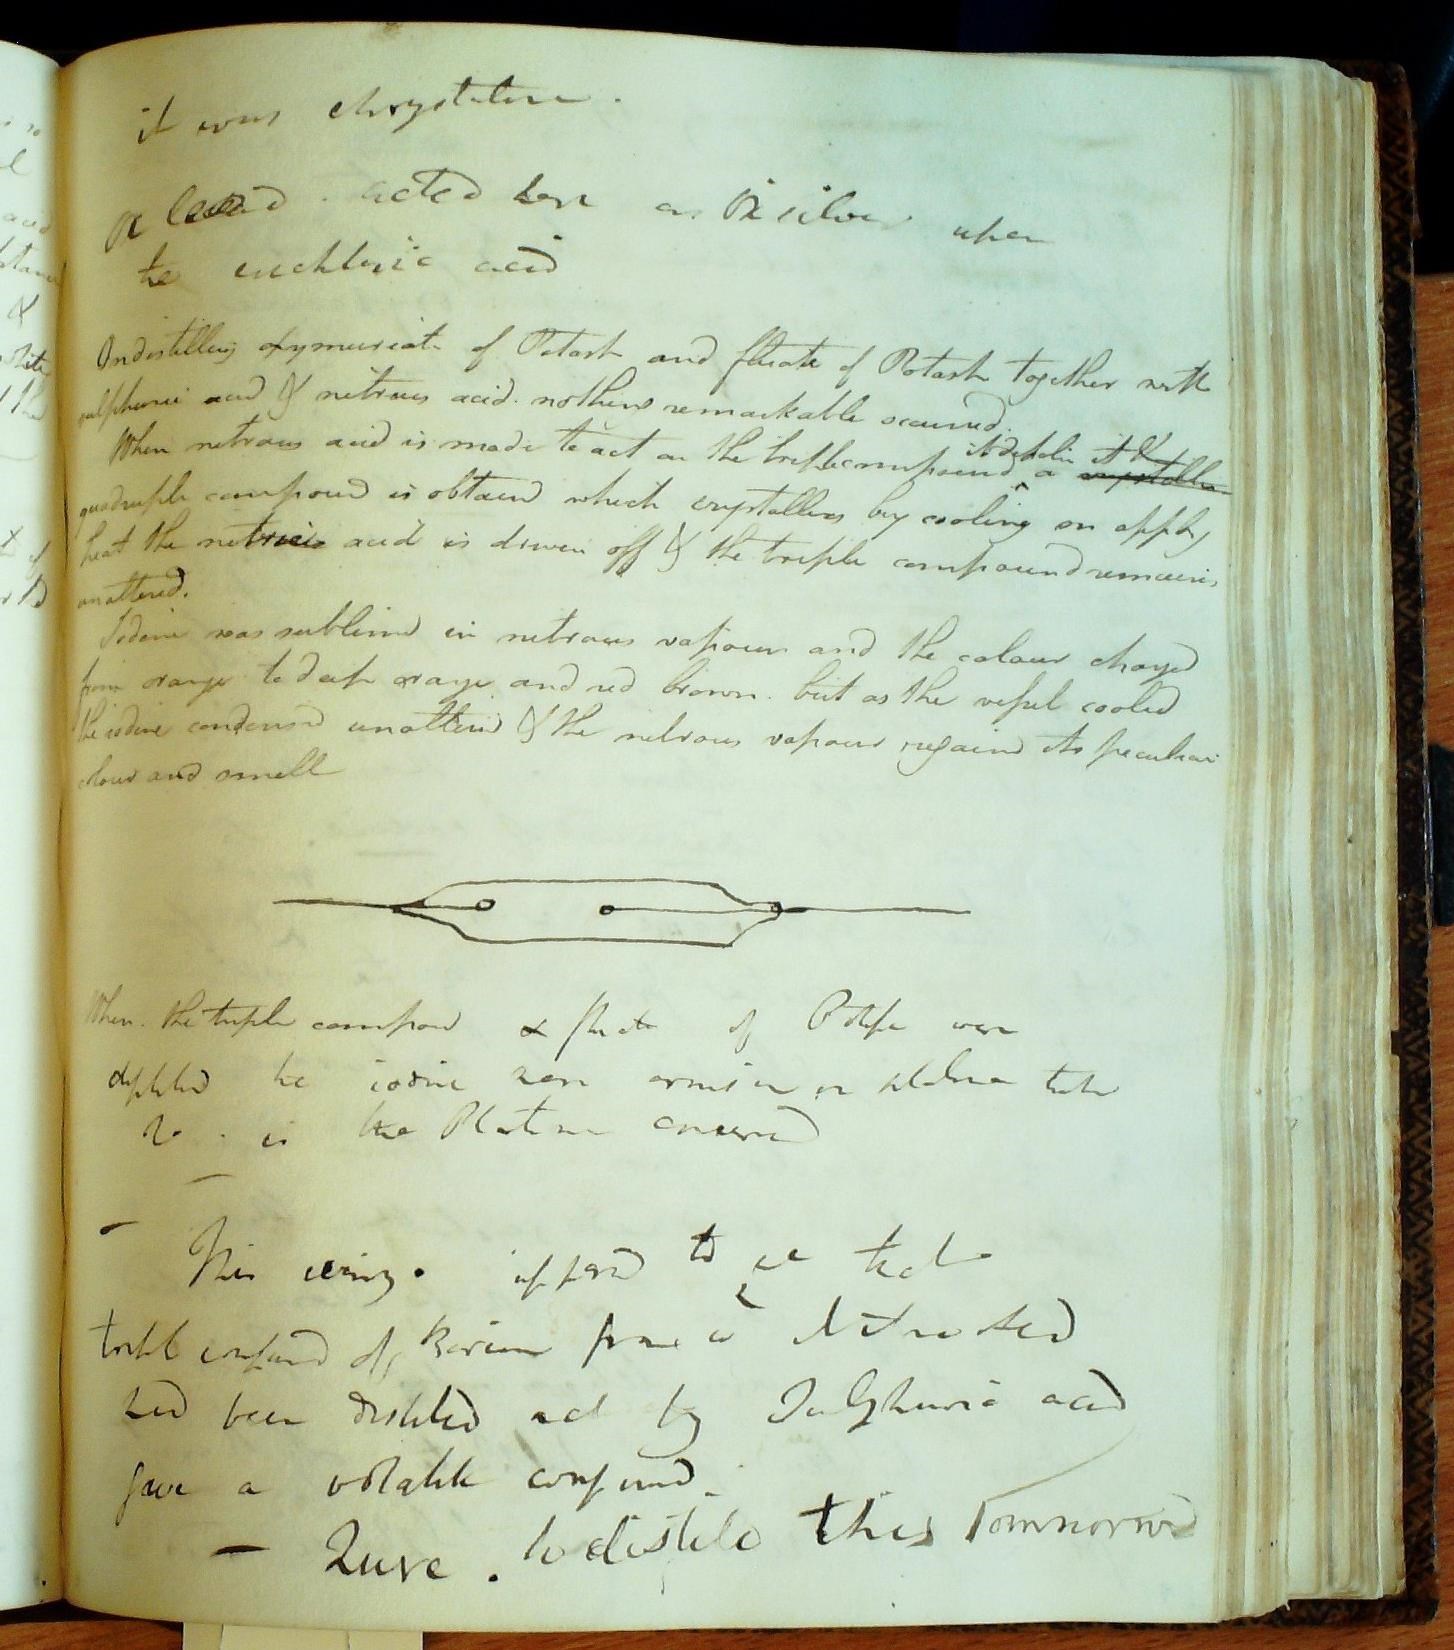 it was chrystaline.
acted here as the silver upon
the euchloric acid
On distilling oxymuriate of Potash and fluate of Potash together with
sulphuric acid & nitrous acid. nothing remarkable occurred.
When nitrous acid is made to act on the triple compound it dissolves it & a
quadruple compound is obtained which crystallizes by cooling on apply
heat the nitric acid is driven off & the triple compound remains
unaltered.
Iodine was sublimed in nitrous vapour and the colour changed
from orange to deep orange and red brown. but as the vessel cooled
the iodine condensed unaltered & the nitrous vapour regained its peculiar
colour and smell
When the triple compound & fluate of Potash were
distilled the iodine
is the Platina
This appeared to
triple compound of Barium from
had been distilled acted by Sulphuric acid
gave a volatile compound.
— Quere. to distill this Tomorrow